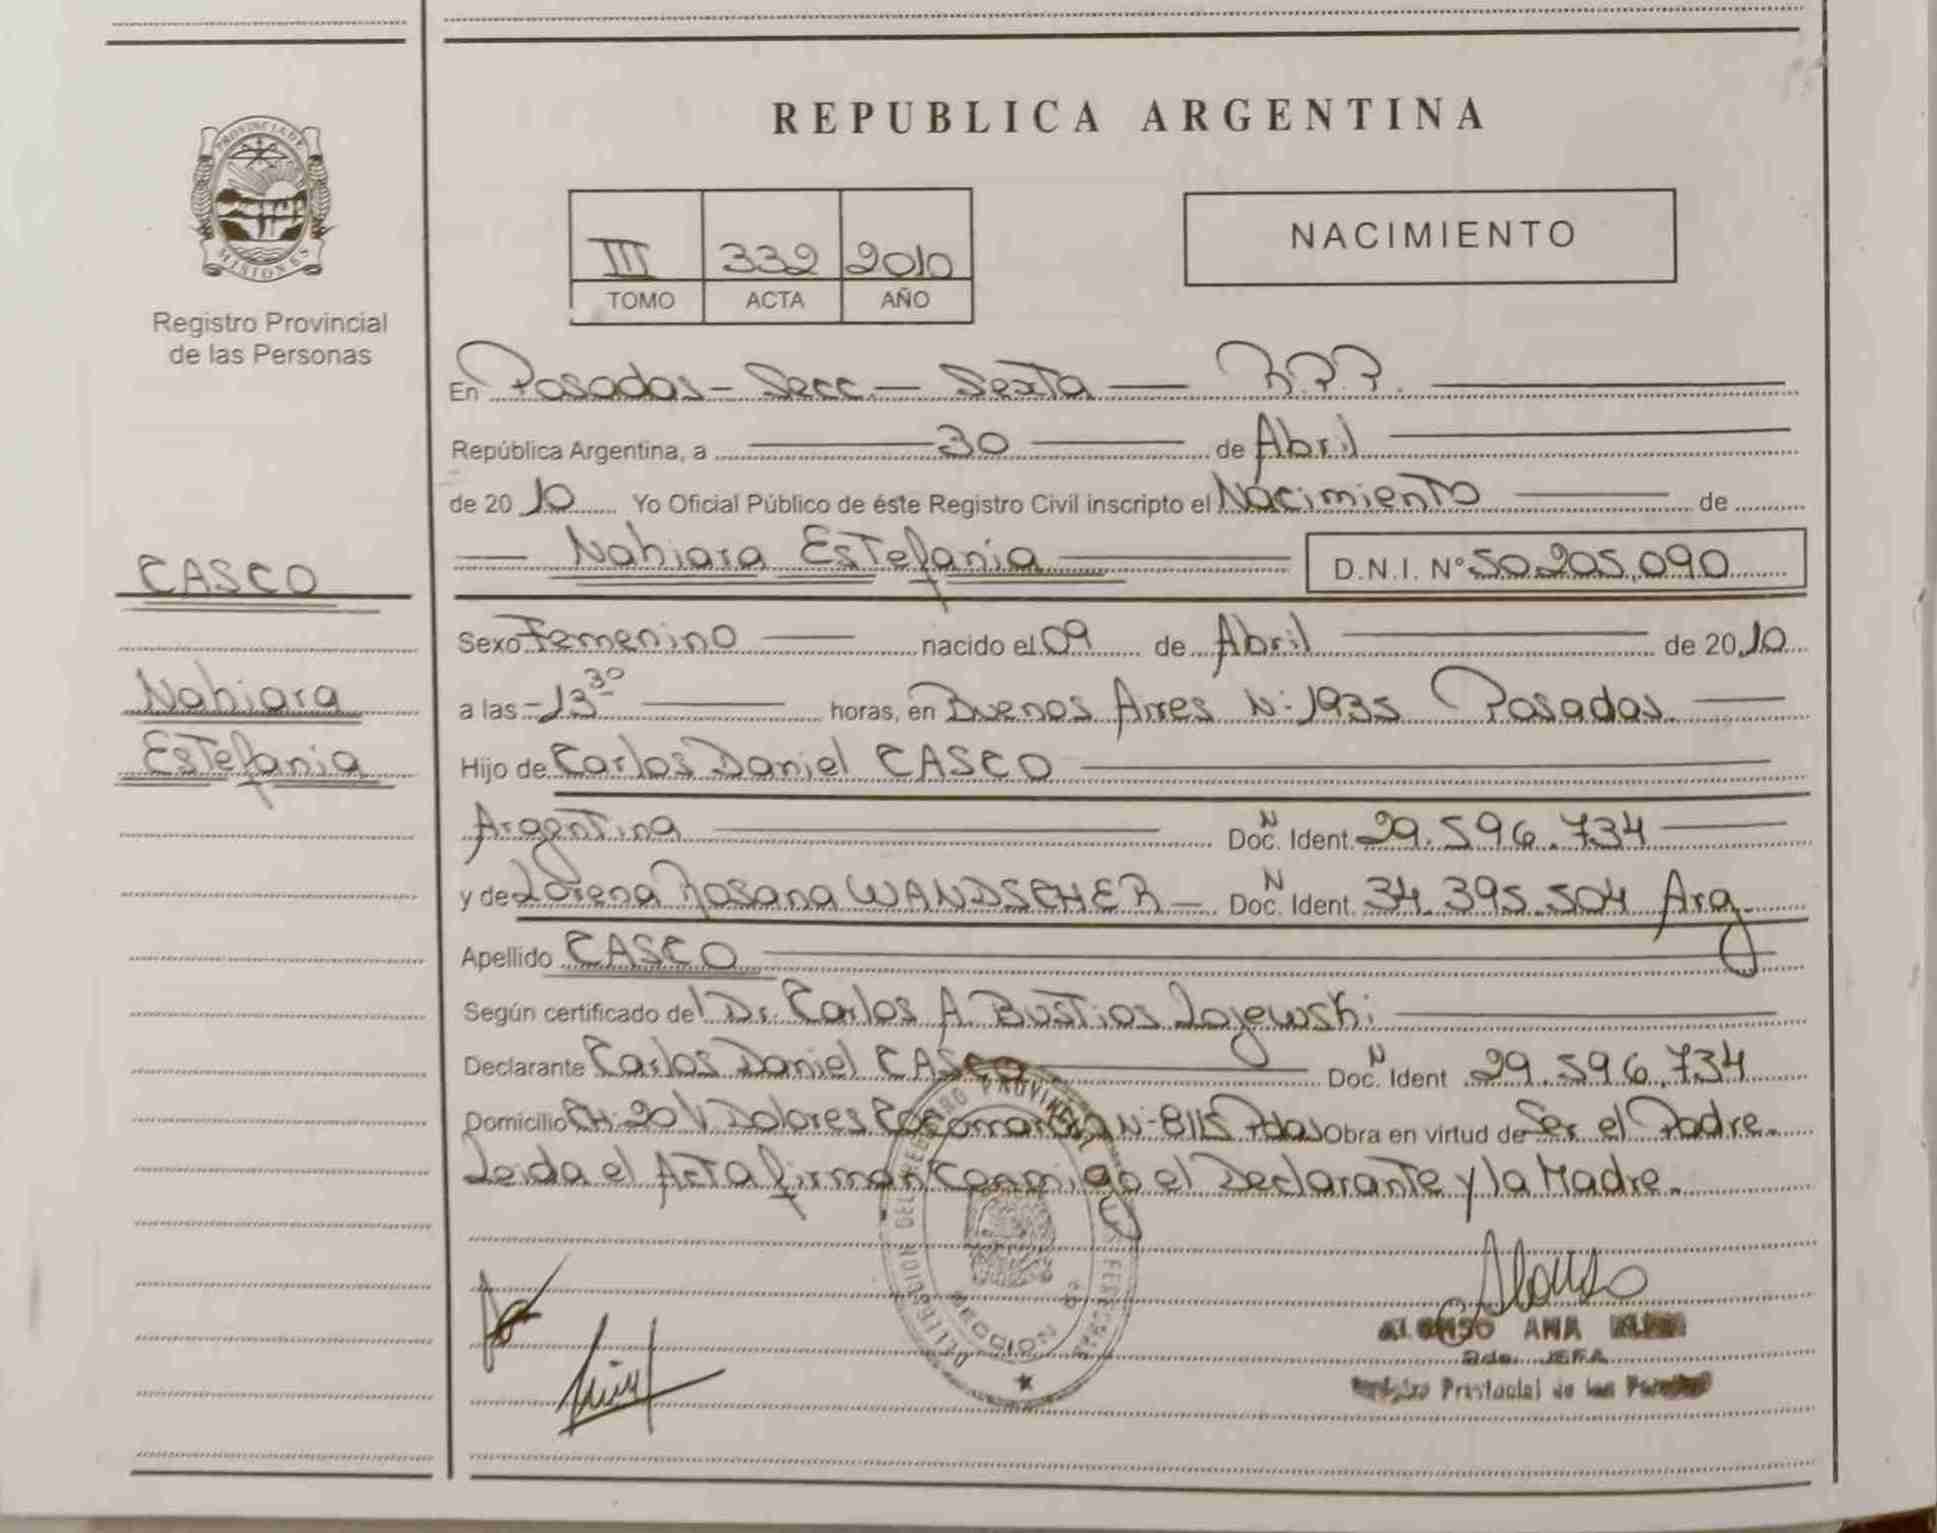 REPUBLICA ARGENTINA
PROVINCIA DE
MISIONES
Registro Provincial
de las Personas
III 332 2010
TOMO ACTA AÑO
NACIMIENTO
En Posadas - Secc. - Sexta - R.P.P.
República Argentina, a 30 de Abril
de 2010 Yo Oficial Público de éste Registro Civil inscripto el Nacimiento de
Nahiara Estefania D.N.I. Nº 50.205.090
CASCO
Nahiara
Estefania
Sexo Femenino nacido el 09 de Abril de 2010
a las - 13 30 horas, en Buenos Aires N: 1935 Posadas.
Hijo de Carlos Daniel CASCO
Argentina Doc. N Ident. 29.596.734
y de Lorena Rosana WANDSCHER - Doc. N Ident. 34.395.504 Arg.
Apellido CASCO
Según certificado del Dr. Carlos A Bustios Lojewski
Declarante Carlos Daniel CASCO Doc. N Ident 29.596.734
Domicilio CH: 20 V Dolores N- 8115 Pdas Obra en virtud de Ser el Padre.
Leida el Acta firman Conmigo el Declarante y la Madre.
REGISTRO PROVINCIAL
SECCION
Alonso
ALONSO ANA
JEFA
Registro Provincial de las